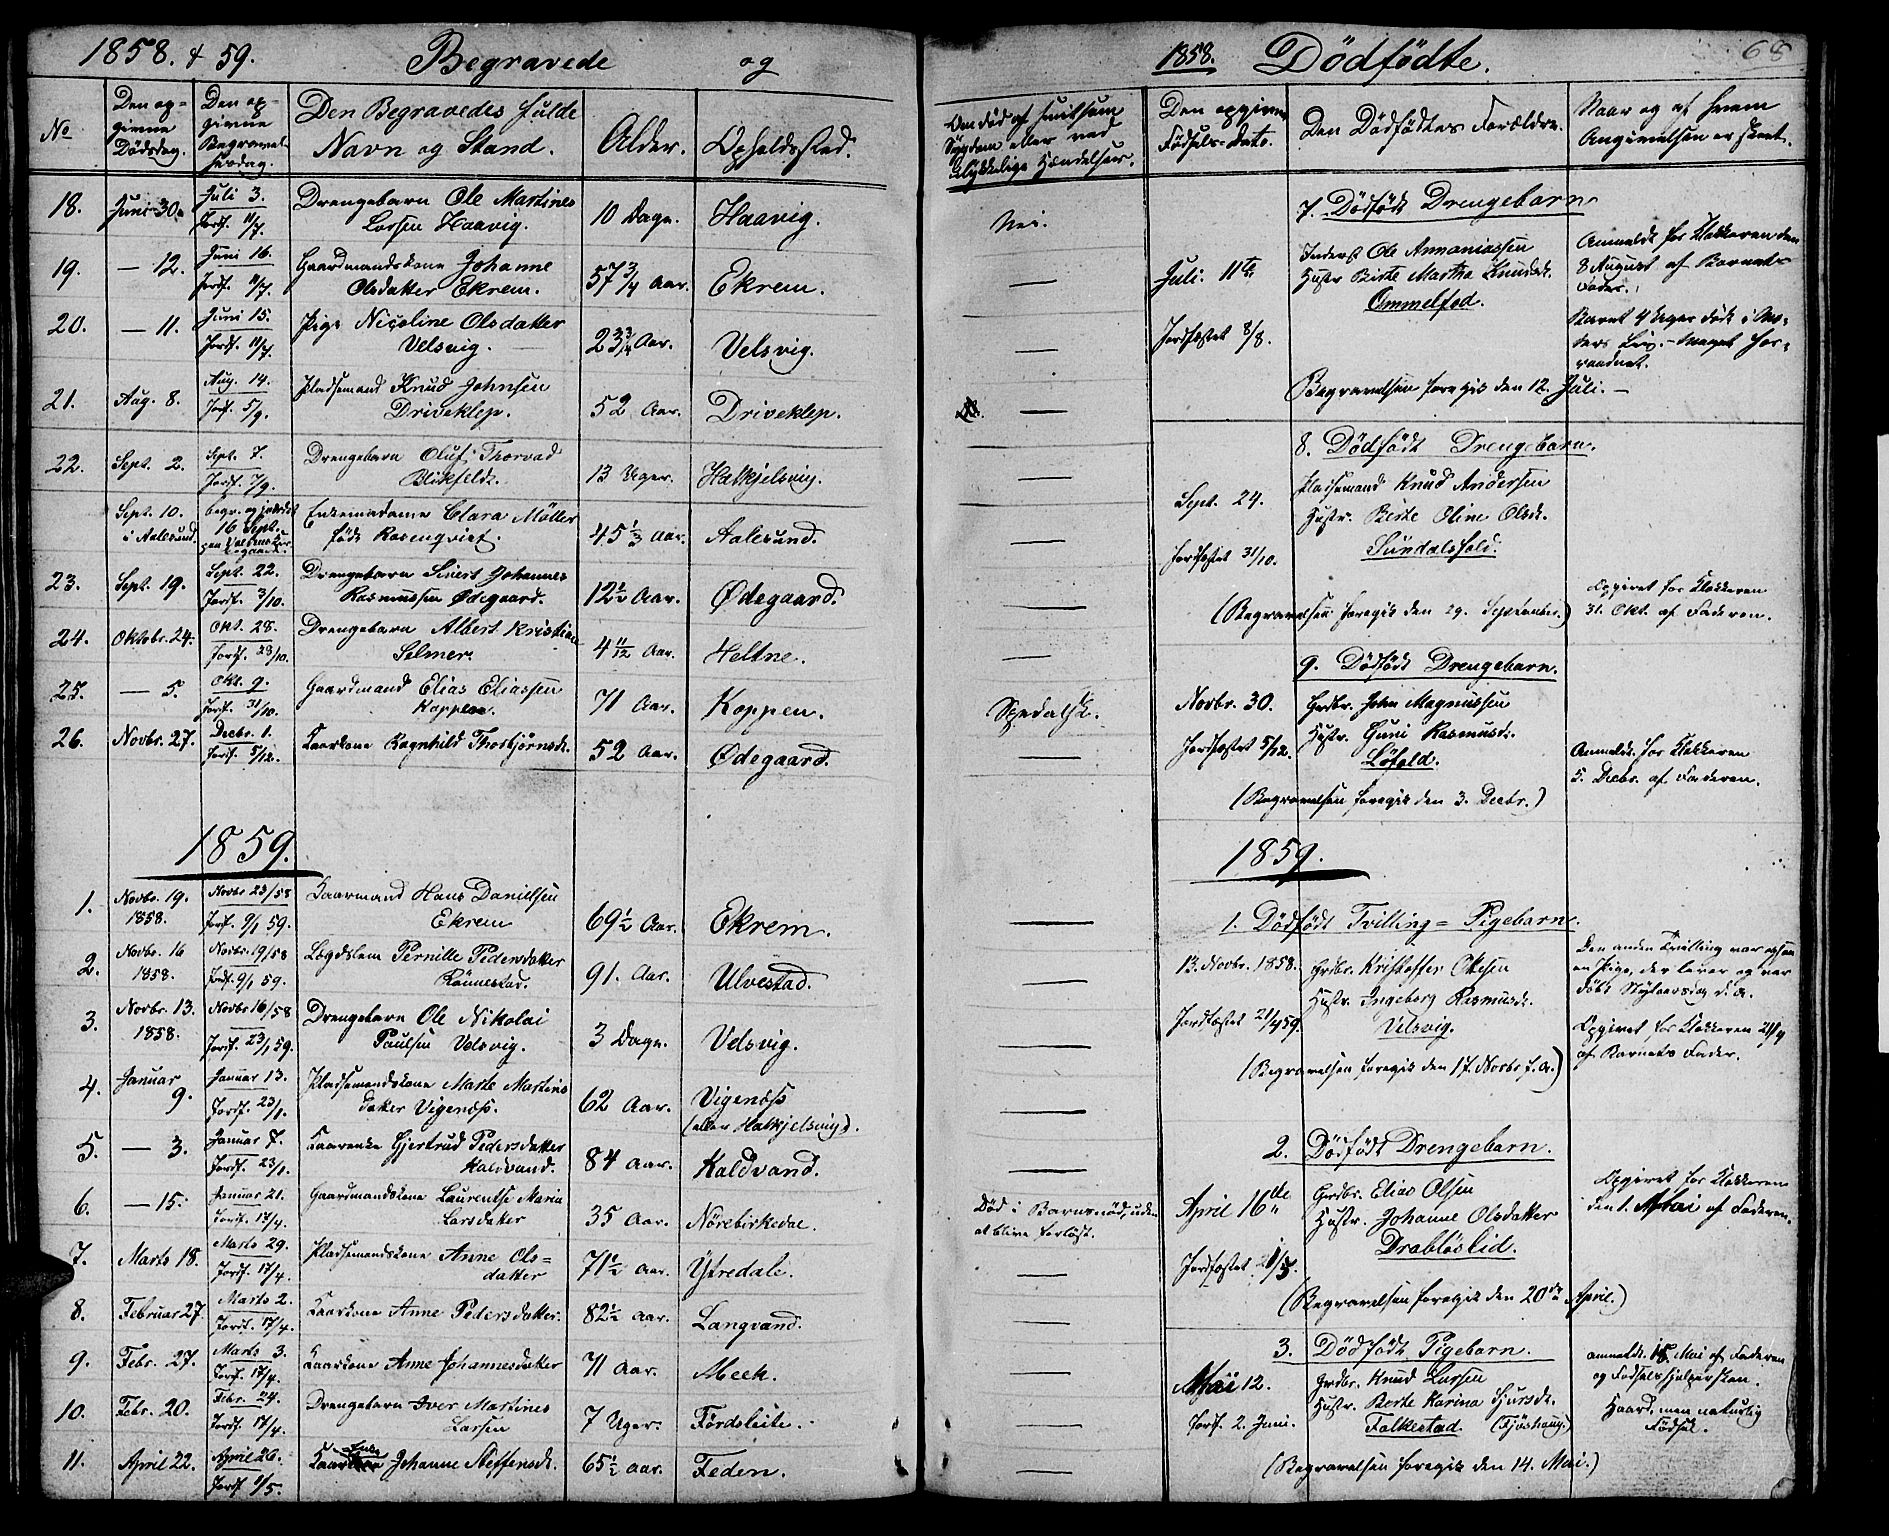 1858. & 59. Begravede og
No
Den op-
givne
Dødsdag.
Den op-
givne
Begravel-
sesdag.
Den Begravedes fulde
Navn og Stand.
Alder.
Opholdssted.
18. Juni 30. Juli 3. Drengebarn Ole Martines
Jordf. 11/7. Larsen Haavig. 10 Dage. Haavig.
19. — 12. Juni 16. Gaardmandskone Johanne
Jordf. 11/7. Olsdatter Ekrem. 57 3/4 Aar. Ekrem.
20. — 11. Juni 15. Pige Nicoline Olsdatter
Jordf. 11/7. Velsvig. 23 3/4 Aar. Velsvig.
21. Aug. 8. Aug. 14. Pladsemand Knud Johnsen
Jordf. 5/9. Driveklep. 52 Aar. Driveklep.
22. Sept. 2. Sept. 7. Drengebarn Oluf Thorvad
Jordf. 7/9. Blikfeldt. 13 Uger. Hatkjelsvig.
Sept. 10. begr. og jordf. Enkemadame Clara Möller
i Aalesund. 16 Sept. født Rosenqvist. 45 1/3 Aar. Aalesund.
23. Sept. 19. Sept. 22. Drengebarn Sivert Johannes
Jordf. 3/10. Rasmussen Ødegaard. 12 1/2 Aar. Ødegaard.
24. Oktobr. 24. Okt. 28. Drengebarn Albert Kristian
Jordf. 28/10. Selmer. 4 11/12 Aar. Heltne.
25. — 5. Okt. 9. Gaardmand Elias Eliassen
Jordf. 31/10. Koppen. 71 Aar. Koppen.
26. Novbr. 27. Decbr. 1. Kaarkone Ragnhild Thorbjörnsd.
Jordf. 5/12. 52 Aar. Ødegaard.
1859.
1. Novbr. 19. Novbr 23/58 Kaarmand Hans Danielsen
1858. Jordf. 9/1 59. Ekrem 69 1/2 Aar. Ekrem.
2. Novbr. 16 Novbr. 19/58 Lægdslem Pernille Pedersdatter
1858. Jordf. 9/1 59. Rönnestad. 91. Aar. Ulvestad.
3. Novbr. 13. Novbr 16/58 Drengebarn Ole Nikolai
1858. Jordf. 23/1 59. Paulsen Velsvig. 3 Dage. Velsvig.
4. Januar Januar 13. Pladsemandskone Marte Martins
9. Jordf. 23/1. datter Vigenæss. 62 Aar. Vigenæss
(eller Hatkjelsvig).
5. — 3. Januar 7. Kaarenke Gjertrud Pedersdatter
Jordf. 23/1. Kaldvand. 84 Aar. Kaldvand.
6. — 15. Januar 21. Gaardmandskone Laurentse Maria
Jordf. 17/4. Larsdatter 35 Aar. Nörebirkedal.
7. Marts 18. Marts 29. Pladsemandskone Anne Ols-
Jordf. 17/4. datter 71 1/2 Aar. Ytredale.
8. Februar 27. Marts 2. Kaarkone Anne Pedersdatter.
Jordf. 17/4. 82 1/2 Aar. Langvand.
9. Febr. 27. Marts 3. Kaarkone Anne Johannesdatter
Jordf. 17/4. 71 Aar. Meek.
10. Febr. 20. Febr. 24. Drengebarn Iver Martines
Jordf. 17/4. Larsen 7 Uger. Fördsleite.
11. April 22. April 26. Enke Johanne Steffensd.
Jordf. 1/5. 65 1/2 Aar. Feden.
1858. Dödfödte. 68
Om død af smitsom
Sygdom eller ved
ulykkelige Hændelser.
Den opgivne
Fødsels-Dato.
Den Dödfödtes Forældre.
Naar og af hvem
Angivelsen er skeet.
Nei.
7. Dödfödt Drengebarn
Juli 11te Inderst Ole Annaniassen
Hustr Birte Martha Knudsd.
Ommelfod.
Jordfæstet 8/8.
Anmeldt for Klokkeren den
8 August af Barnets
Fader.
Barnet 4 Uger dødt i Mo-
ders Liv. – meget for-
raadnet.
Begravelsen foregik den 12. Juli. –
8. Dödfödt Drengebarn.
Sept. 24. Pladsemand Knud Andersen
Hustr. Berte Oline Olsd.
Jordfæstet 31/10. Sundalsfold.
(Begravelsen foregik den 29. September.)
Opgivet for Klokkeren
31. Okt. af Faderen.
Spedalsk.
9. Dödfödt Drengebarn.
Novbr. 30. Grdbr. John Magnussen
Hustr. Guni Rasmusd.
Jordfæstet 5/12. Löfold.
(Begravelsen foregik den 3. Decbr.)
Anmeldt for Klokkeren
5. Decbr. af Faderen.
1859.
1. Dödfödt Tvilling = Pigebarn.
13. Novbr. 1858. Grdbr. Kristoffer Ottesen
Hustr. Ingeborg Rasmusd.
Jordfæstet 21/4 59. Velsvig.
(Begravelsen foregik den 17. Novbr f. A.)
Den anden Tvilling var ogsaa
en Pige, der lever og var
døbt Nytaarsdag d. A.
Opgivet for Klokkeren 21/4
af Barnets Fader.
2. Dödfödt Drengebarn.
April 16de Grdbr. Elias Olsen
Hustr. Johanne Olsdatter
Drabløslid.
Jordfæstet 1/5.
(Begravelsen foregik den 20de April.)
Opgivet for Klokkeren
den 1. Mai af Faderen.
Död i Barnsnöd, uden
at blive forløst.
3. Dödfödt Pigebarn.
Mai 12. Grdbr. Knud Larsen
Hustr. Berte Karina Sjursd.
Jordf. 2. Juni. Falkestad (Tjöshaug)
(Begravelsen foregik den 14. Mai.)
anmeldt 15. Mai af Faderen
og Fødselshjelpersken.
Haard, men naturlig
Födsel.